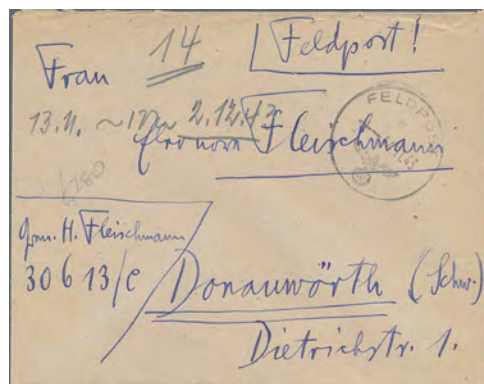 14
Feldpost!
Frau
13.11. ~ 2.12.43
Eleonora Fleischmann
FELDPOST
43
H. Fleischmann
30613/C
Donauwörth (Schw.)
Dietrichstr. 1.